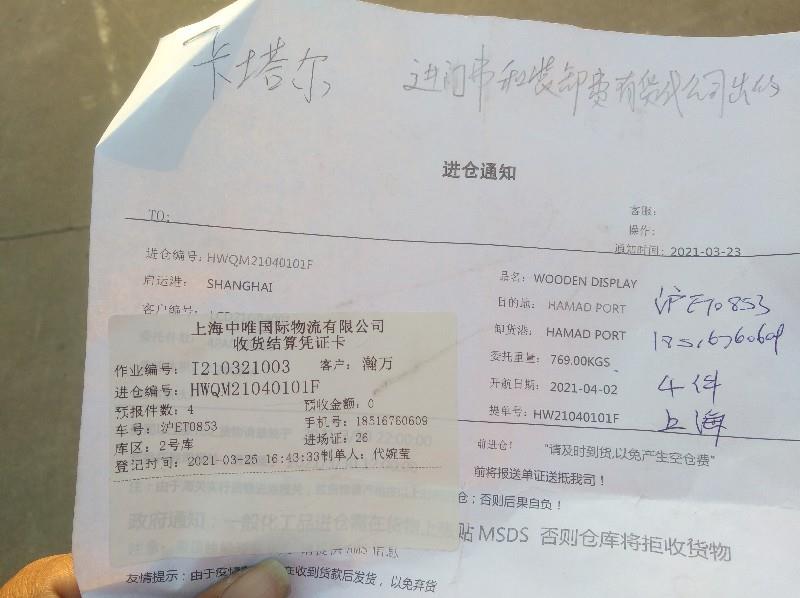 卡塔尔
进门费和装卸费有货代公司出的
进仓通知
TO:
客服：
操作：
通知时间：2021-03-23
进仓编号：HWQM21040101F
启运港： SHANGHAI
客户编号：
品名：WOODEN DISPLAY
目的地： HAMAD PORT
卸货港： HAMAD PORT
委托重量：769.00KGS
开航日期：2021-04-02
提单号：HW21040101F
沪ET0853
18516760609
4件
上海
上海中唯国际物流有限公司
收货结算凭证卡
作业编号：I210321003 客户：瀚万
进仓编号：HWQM21040101F
预报件数：4 预收金额：0
车号：沪ET0853 手机号：18516760609
库区：2号库 进场证：26
登记时间：2021-03-25 16:43:33制单人：代婉莹
前进仓！ "请及时到货,以免产生空仓费"
前将报送单证送抵我司！
仓；否则后果自负！
政府通知：一般化工品进仓需在货物上 贴MSDS 否则仓库将拒收货物
友情提示：由于疫情 在收到货款后发货，以免弃货